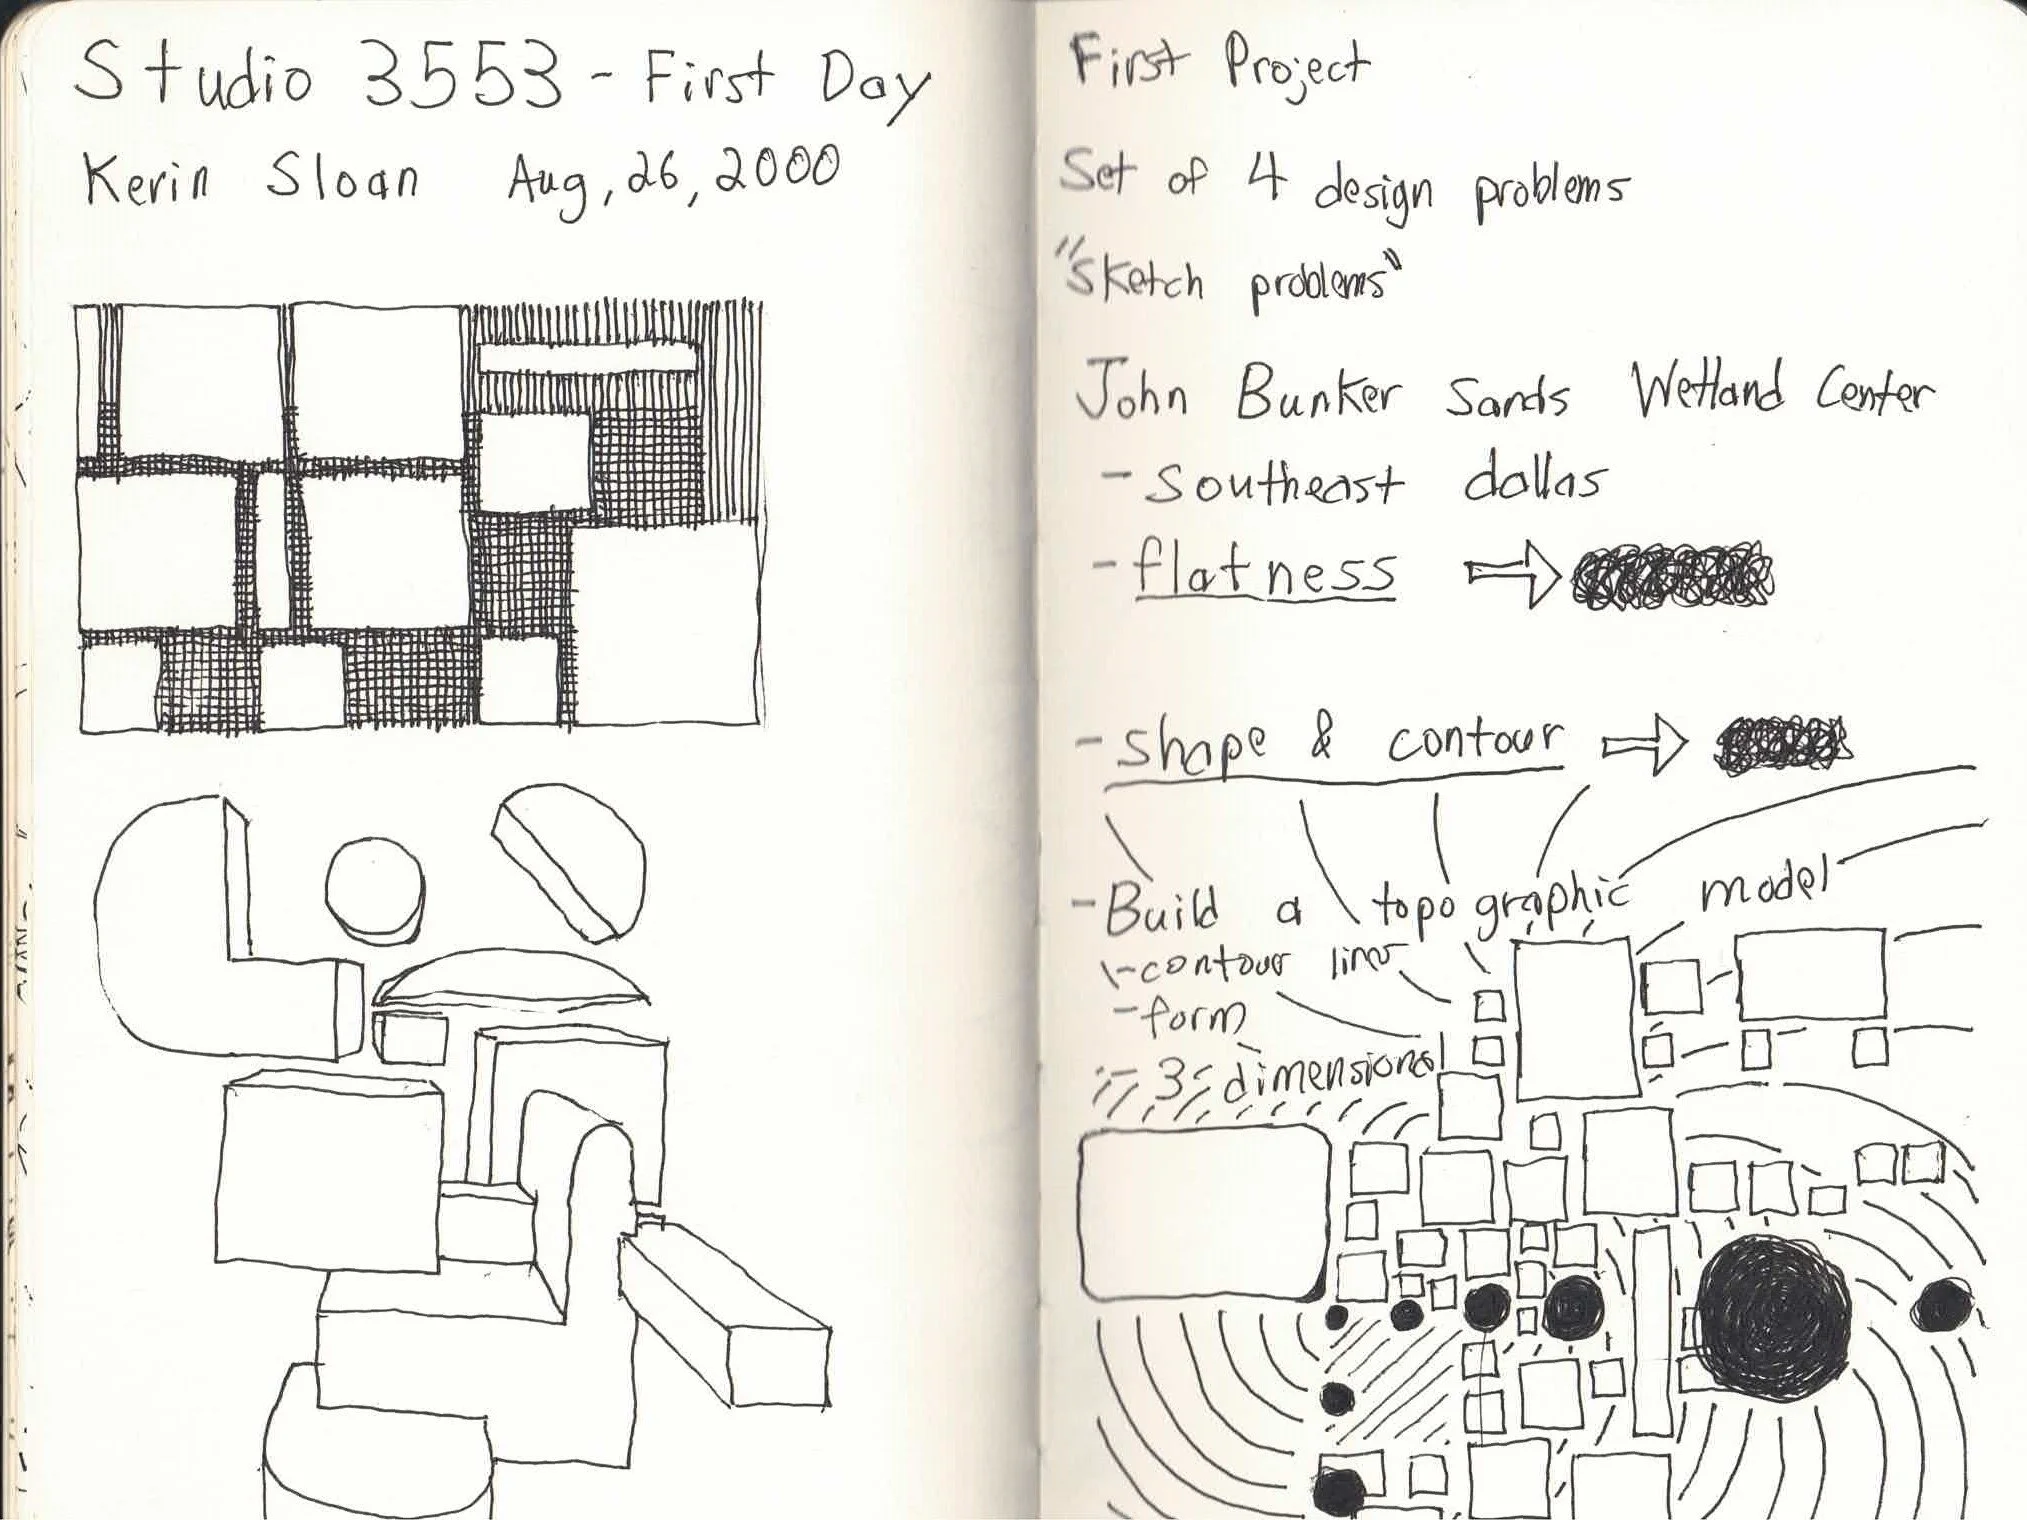 Studio 3553 - First Day
Kerin Sloan Aug, 26, 2000
First Project
Set of 4 design problems
"Sketch problems"
John Bunker Sands Wetland Center
- Southeast dallas
- flatness
- shape & contour
- Build a topographic model
- contour lines
- form
- 3 - dimensional